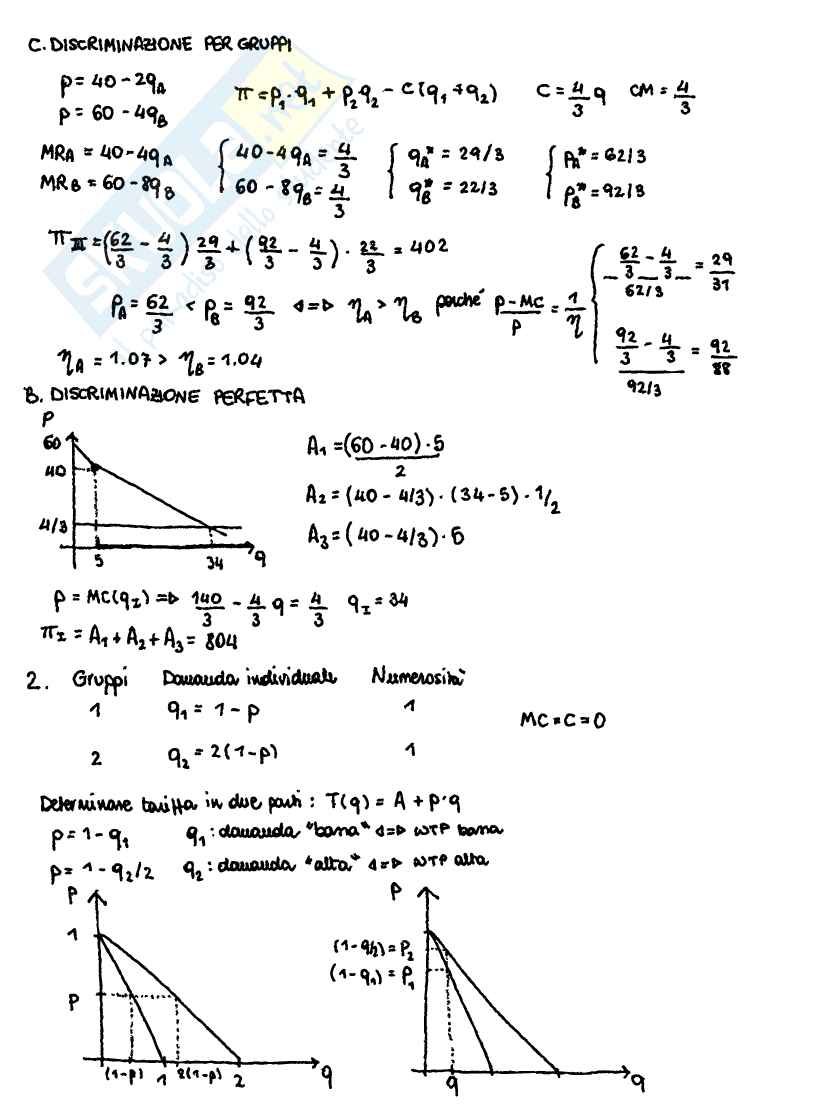 C. DISCRIMINAZIONE PER GRUPPI
p = 40 - 2qA
p = 60 - 4qB
π = p1·q1 + p2 q2 - C(q1 + q2)   C = 4/3 q   CM = 4/3
MRA = 40 - 4qA   { 40 - 4qA = 4/3   { qA* = 29/3   { pA* = 62/3
MRB = 60 - 8qB   60 - 8qB = 4/3   qB* = 22/3   pB* = 92/3
πIII = (62/3 - 4/3) 29/3 + (92/3 - 4/3) · 22/3 = 402
pA = 62/3 < pB = 92/3 <=> ηA > ηB perché (p - MC)/p = 1/η { (62/3 - 4/3)/(62/3) = 29/31
(92/3 - 4/3)/(92/3) = 92/88
ηA = 1.07 > ηB = 1.04
B. DISCRIMINAZIONE PERFETTA
p
60
40
4/3
5
34
q
A1 = (60 - 40)·5/2
A2 = (40 - 4/3)·(34 - 5)·1/2
A3 = (40 - 4/3)·5
p = MC(qI) => 140/3 - 4/3 q = 4/3   qI = 34
πI = A1 + A2 + A3 = 804
2. Gruppi   Domanda individuale   Numerosità
1   q1 = 1 - p   1
MC = C = 0
2   q2 = 2(1-p)   1
Determinare tariffa in due parti : T(q) = A + p·q
p = 1 - q1   q1 : domanda "bassa" <=> WTP bassa
p = 1 - q2/2   q2 : domanda "alta" <=> WTP alta
p
1
p
(1-p)
1
2(1-p)
2
q
p
(1-q/2) = P2
(1-q1) = P1
q
q
SKUOLA.net
il paradiso dello studente